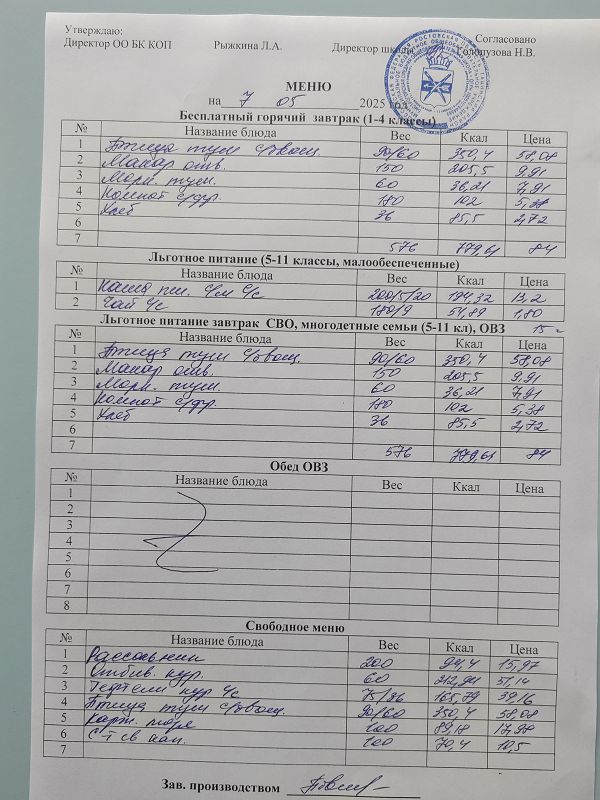 Утверждаю:
Согласовано
Директор ОО БК КОП Рыжкина Л.А. Директор школы Голопузова Н.В.
МЕНЮ
на 7 05 2025 год
Бесплатный горячий завтрак (1-4 классы)
№ Название блюда Вес Ккал Цена
1 Птица туш с/овощ. 90/60 350,4 58,08
2 Макар отв. 150 205,5 9,91
3 Морк. туш. 60 36,21 7,91
4 Компот с/фр. 180 102 5,38
5 Хлеб 36 85,5 2,72
6
7 576 779,61 84
Льготное питание (5-11 классы, малообеспеченные)
№ Название блюда Вес Ккал Цена
1 Каша пш. 200/5/20 194,32 13,2
2 Чай с/с 180/9 54,89 1,80
Льготное питание завтрак СВО, многодетные семьи (5-11 кл), ОВЗ 15
№ Название блюда Вес Ккал Цена
1 Птица туш с/овощ. 90/60 350,4 58,08
2 Макар отв. 150 205,5 9,91
3 Морк. туш. 60 36,21 7,91
4 Компот с/фр. 180 102 5,38
5 Хлеб 36 85,5 2,72
6
7 576 779,61 84
Обед ОВЗ
№ Название блюда Вес Ккал Цена
1
2
3
4
5
6
7
8
Свободное меню
№ Название блюда Вес Ккал Цена
1 Рассольник 200 94,4 15,97
2 Отбив. кур. 60 212,94 57,14
3 Тефтели кур с/с 75/36 165,79 39,16
4 Птица туш с/овощ. 90/60 350,4 58,08
5 Карт. пюре 100 89,18 17,98
6 С-т св кап. 100 70,4 10,5
7
Зав. производством